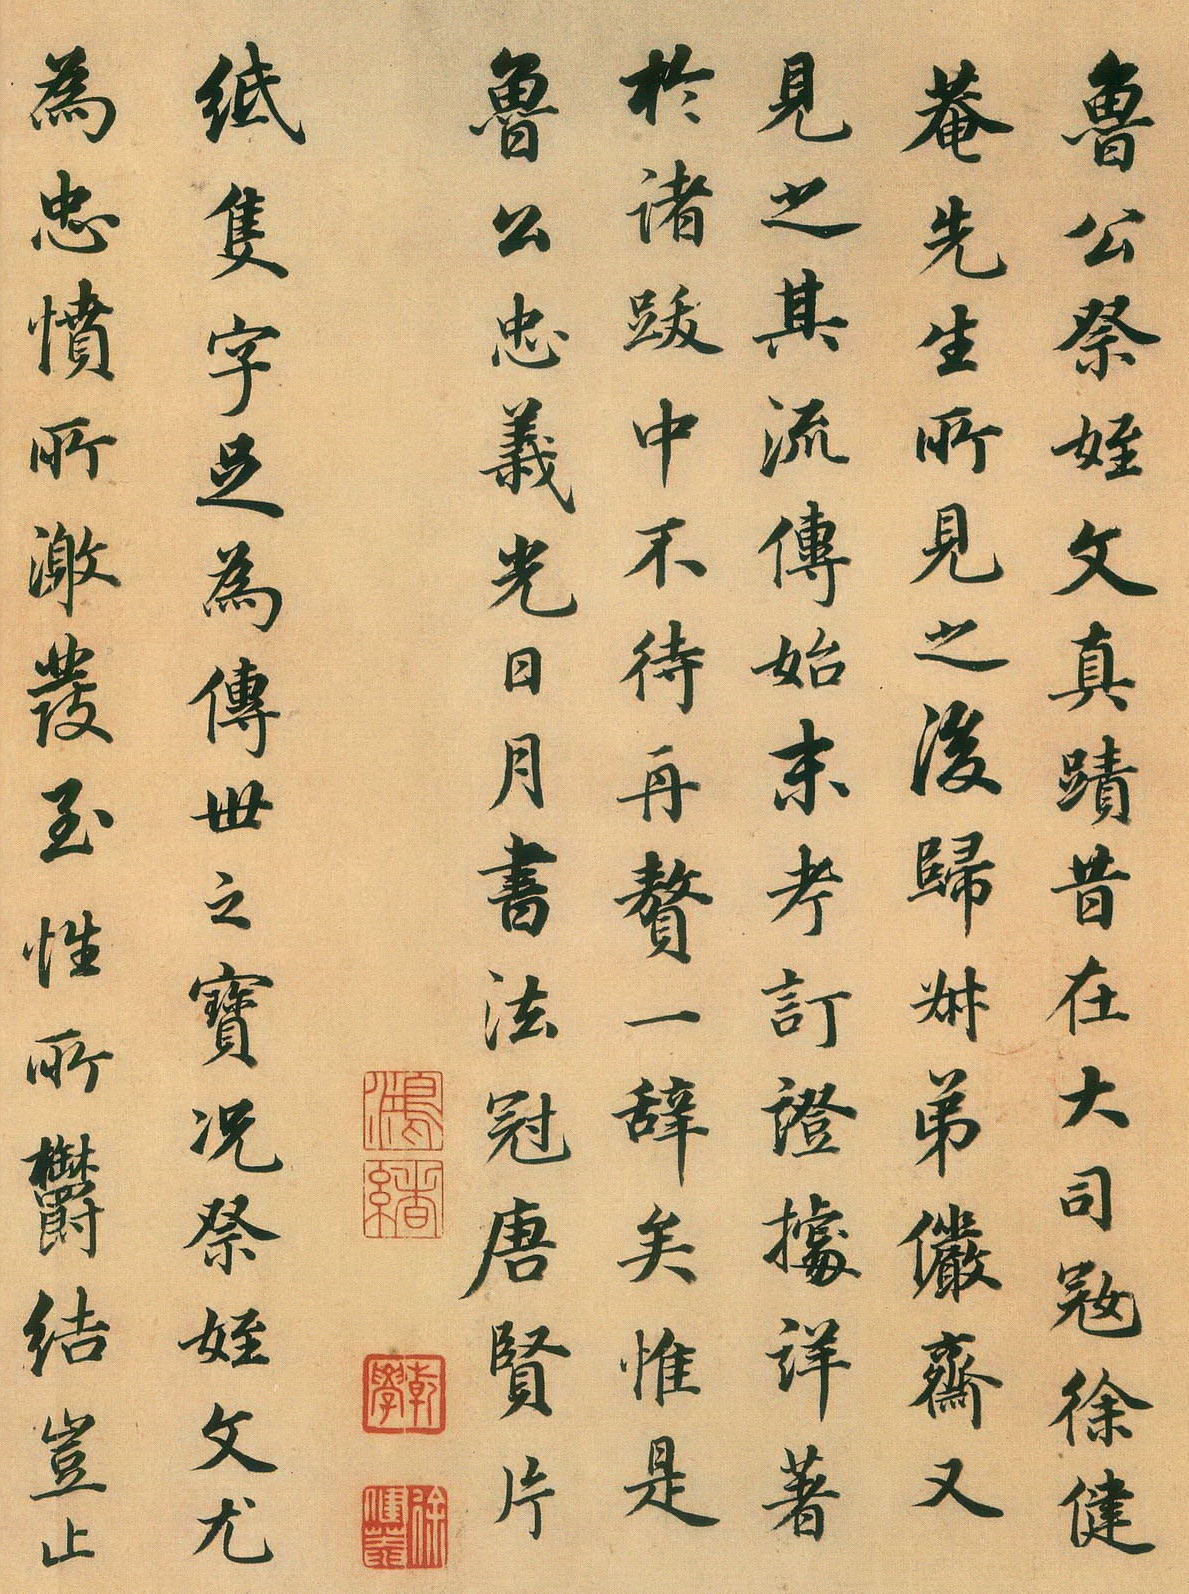 魯公祭姪文真蹟昔在大司寇徐健
菴先生所見之後歸㫺弟儼齋又
見之其流傳始末考訂證據詳著
於諸跋中不待再贅一辭矣惟是
魯公忠義光日月書法冠唐賢片
紙隻字足為傳世之寶況祭姪文尤
為忠憤所激發至性所鬱結豈止
乾學
徐健菴